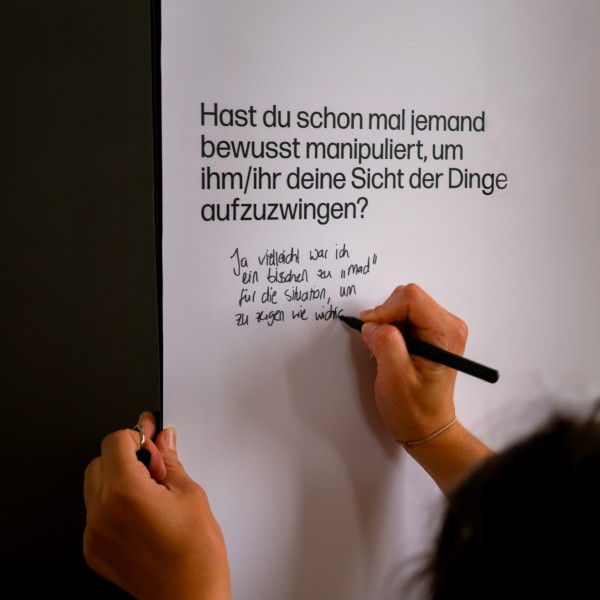 Hast du schon mal jemand
bewusst manipuliert, um
ihm/ihr deine Sicht der Dinge
aufzuzwingen?
Ja vielleicht war ich
ein bisschen zu „mad"
für die situation, um
zu zeigen wie wichtig